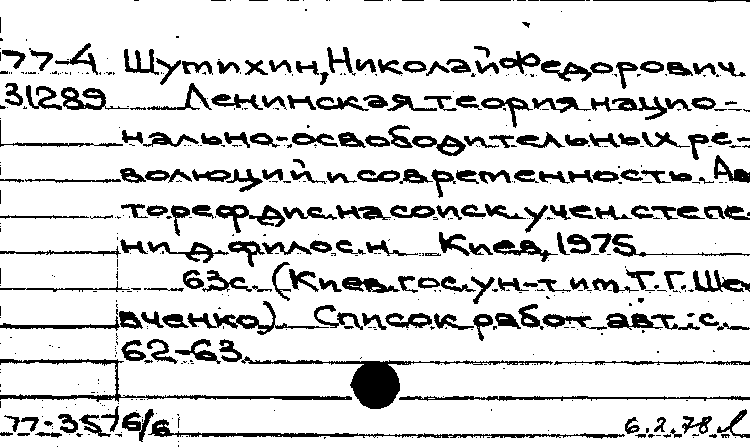 77-4 Шутихин, Николай Федорович.
31289 Ленинская теория нацио-
нально-освободительных ре-
волюций и современность. Ав
тореф. дис. на соиск. учен. степе
ни д. филос. н. Киев, 1975.
63с. (Киев. гос. ун-т им. Т. Г. Шев
вченко). Список работ авт.: с.
62-63.
77-3576/6 6.2.78